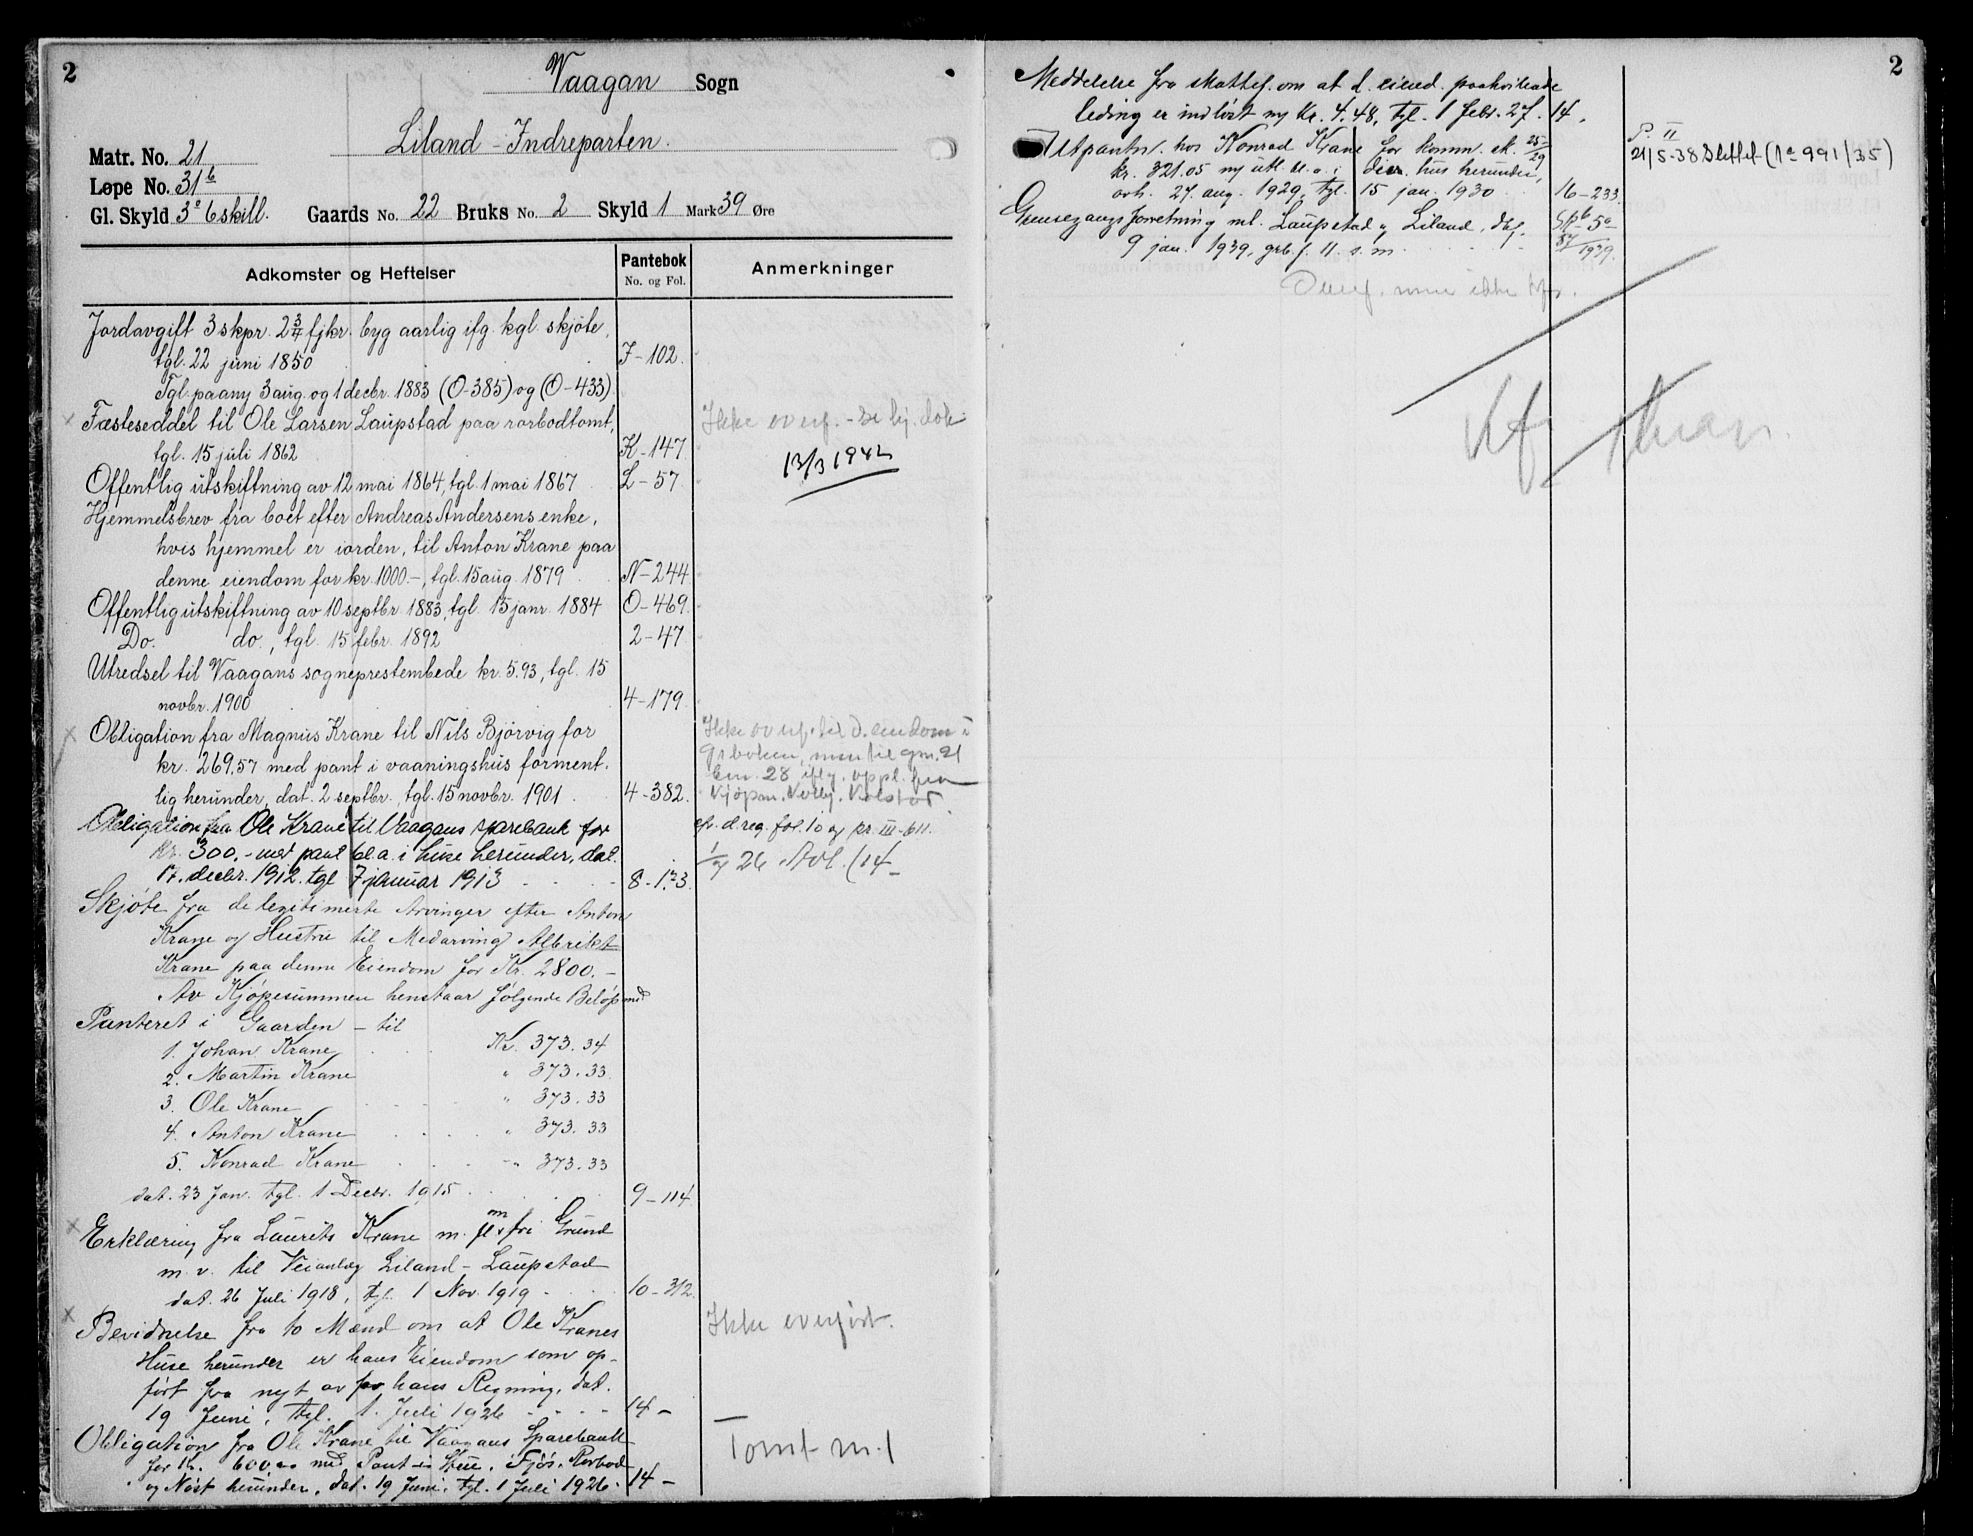 2
Vaagan Sogn
Liland - Indreparten.
Matr. No. 21
Løpe No. 31b
Gl. Skyld 3 o 6 skill. Gaards No. 22 Bruks No. 2 Skyld 1 Mark 39 Øre
Adkomster og Heftelser
Pantebok
No. og Fol.
Anmerkninger
Jordavgift 3 skpr. 2 3/4 fjkr. byg aarlig ifg. kgl. skjöte,
tgl. 22 juni 1850 J-102.
Tgl. paany 3 aug. og 1 decbr. 1883 (O-385) og (O-433)
Fæsteseddel til Ole Larsen Laupstad paa rorbodtomt,
tgl. 15 juli 1862 K-147
Ikke overf. - se lj. dok
13/3 1942
Offentlig utskiftning av 12 mai 1864, tgl. 1 mai 1867 L-57
Hjemmelsbrev fra boet efter Andreas Andersens enke,
hvis hjemmel er iorden, til Anton Krane paa
denne eiendom for kr. 1000.-, tgl. 15 aug. 1879 N-244
Offentlig utskiftning av 10 septbr. 1883, tgl. 15 janr. 1884 O-469.
Do. do., tgl. 15 febr. 1892 2-47
Utredsel til Vaagans sogneprestembede kr. 5.93, tgl. 15
novbr. 1900 4-179
Obligation fra Magnus Krane til Nils Bjørvig for
kr. 269.57 med pant i vaaningshus forment.
lig herunder, dat. 2 septbr., tgl. 15 novbr. 1901 4-382.
Ikke overf. til d. eiendom i
grboken, men til gnr. 21
bnr. 28 iflg. oppl. fra
Kjøpm.
cfr. d. reg. fol. 10 og pr. III-611.
Obligation fra Ole Krane til Vaagans sparebank for
kr. 300.- med pant bl.a. i huse herunder, dat.
17. decbr. 1912. tgl 7 januar 1913 8-133
26 Avl. (14-
Skjöte fra de legitimerte Arvinger efter Anton
Krane og Hustru til Medarving Albrikt
Krane paa denne Eiendom for Kr. 2800.-
Av Kjöpesummen henstaar følgende Beløp med
Panteret i Gaarden - til
1. Johan Krane Kr. 373.34
2. Martin Krane " 373.33
3. Ole Krane " 373.33
4. Anton Krane " 373.33
5. Konrad Krane " 373.33
dat. 23 Jan. tgl. 1 Decbr. 1915 9-114
Erklæring fra Laurits Krane m. fl. om fri Grund
m. v. til Veianlæg Liland - Laupstad
dat. 26 Juli 1918, tgl. 1 Nov. 1919 10-312
Bevidnelse fra to Mænd om at Ole Kranes
Huse herunder er hans Eiendom som op-
ført fra nyt av for hans Regning, dat.
19 Juni, tgl. 1. Juli 1926 14-
Ikke overført.
Obligation fra Ole Krane til Vaagans Sparebank
for Kr. 600.00 med Pant i Stue, Fjös, Rorbod
og Nöst herunder, dat. 19 Juni, tgl. 1 Juli 1926. 14-
Tomt m.f
2
Meddelelse fra skattef. om at d. eiend. paahvilende
leding er indlöst m/ kr. 4.48, tgl. 1 febr. 27. 14.
Utpantn. hos Konrad Krane for komm. sk. 25-29
kr. 321.05 m/ utl. bl. a. i dens hus herunder,
avh. 27. aug. 1929, tgl. 15 jan. 1930 16-233.
P. II
21/5-38 Slettet (No 991/35)
Grensegangsforretning ml. Laupstad og Liland, dat.
9 jan. 1939, grb.f. 11. s. m. 1939.
Overf. men ikke